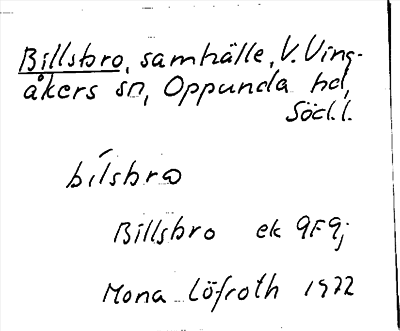 Billsbro, samhälle, V. Ving-
åkers sn, Oppunda hd,
Södl.l.
bílsbro
Billsbro ek 9F9j
Mona Löfroth 1972